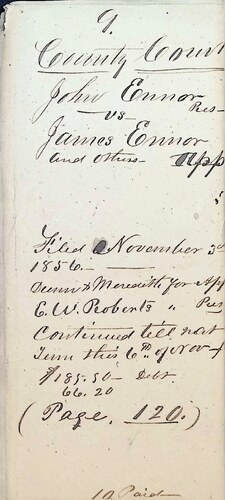 9.
County Court
John Ennor Res
vs
James Ennor
and others app
Filed November 3d
1856.
Dunn & Meredith for App
E. W. Roberts " Res
Continued till next
Term this 6th of Nov
$185.50 Debt
66.20
(Page, 120.)
19 Paid